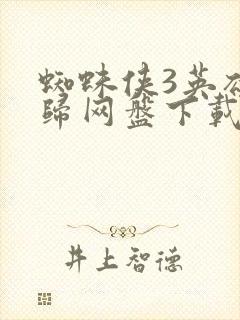 蜘蛛侠3英雄
归网盘下载
井上智德